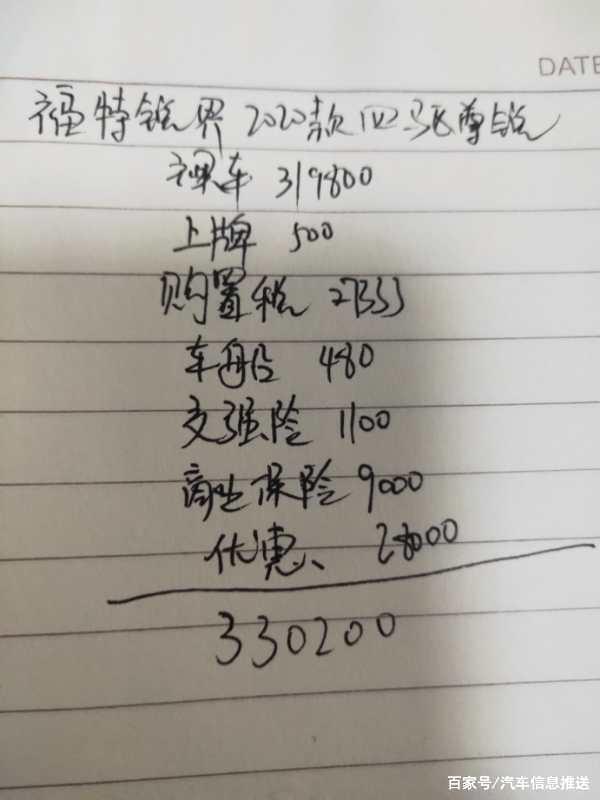 DATE
福特锐界 2020款四驱尊锐
裸车 319800
上牌 500
购置税 27333
车船 480
交强险 1100
商业保险 9000
优惠 28000
330200
百家号/汽车信息推送